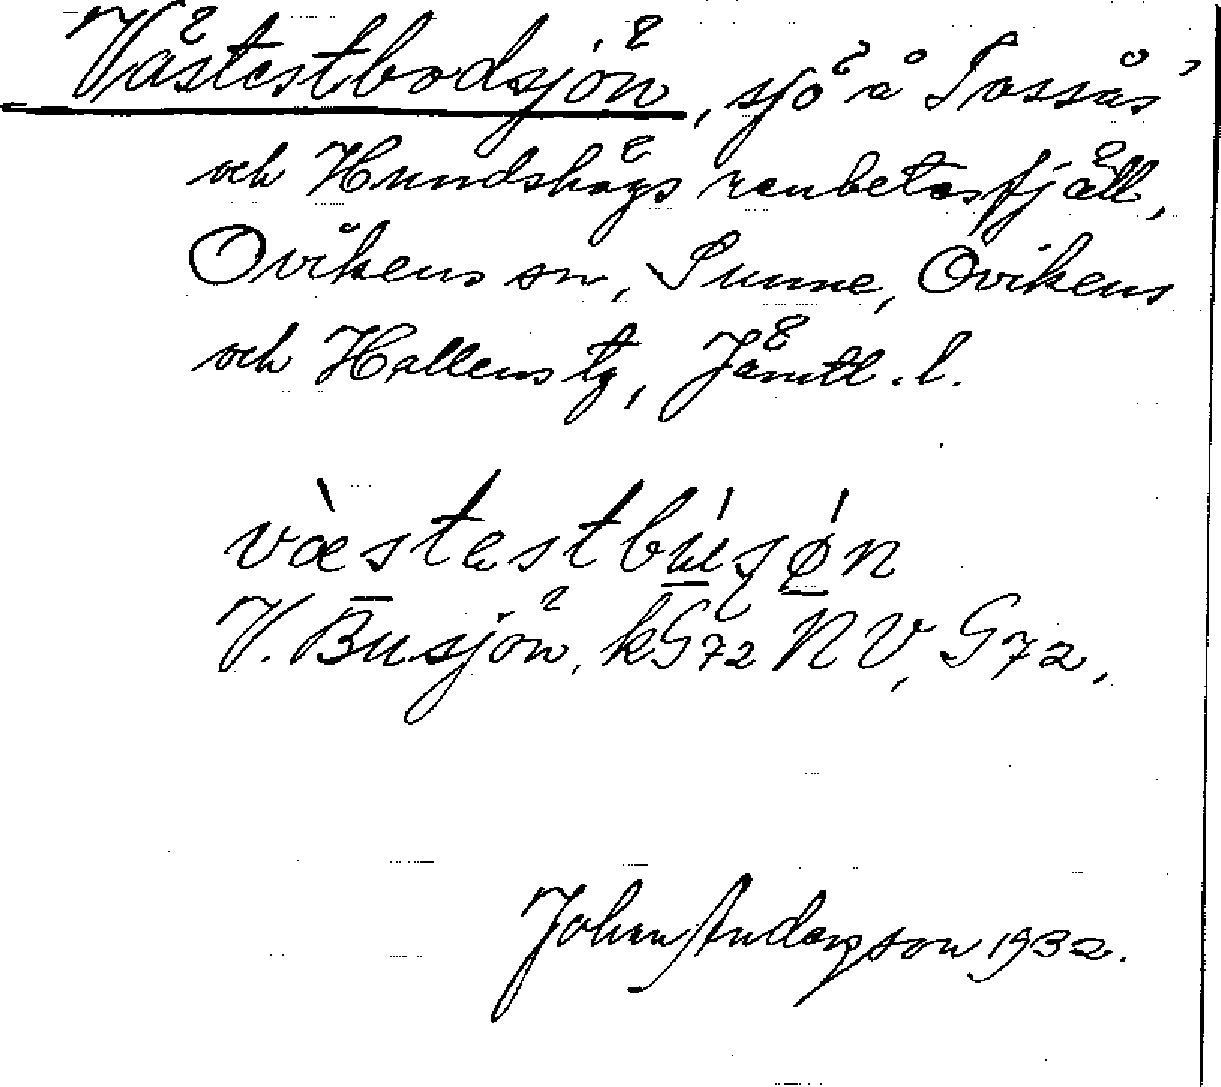 Västestbodsjön, sjö å Tossås'
och Hundshögs renbetesfjäll,
Ovikens sn, Sunne, Ovikens
och Hallens tg, Jämtl. l.
væ̀stestbúsjǿn
V. Busjön, kG72 NV, G72.
Johan Anderson 1932.